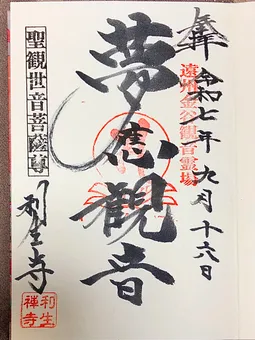 奉拝
令和七年九月十六日
遠州金谷観音霊場
夢応観音
聖観世音菩薩尊
利生寺
利生禅寺